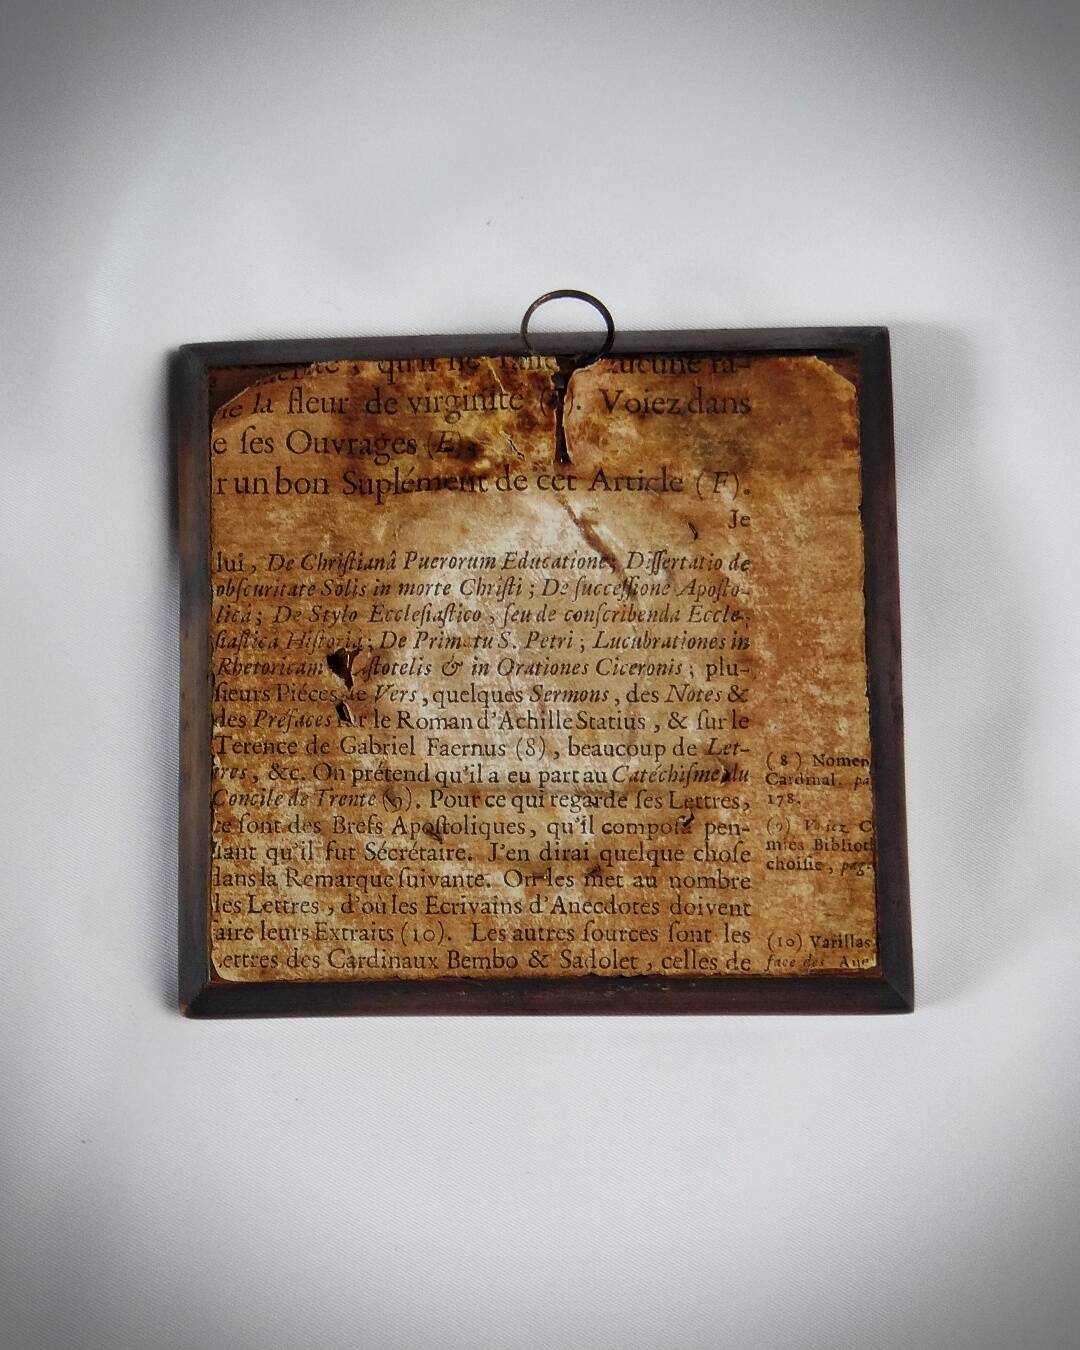 qu'il ne aucune ra-
la fleur de virginité ( ). Voiez dans
e ſes Ouvrages (E).
r un bon Suplément de cet Article (F).
Je
lui, De Chriſtianâ Puerorum Educatione; Diſſertatio de
obſcuritate Solis in morte Chriſti; De ſucceſſione Apoſto-
licâ; De Stylo Eccleſiaſtico, ſeu de conſcribenda Eccle-
ſiaſticâ Hiſtoriâ; De Primatu S. Petri; Lucubrationes in
Rhetoricam ſtotelis & in Orationes Ciceronis; plu-
ſieurs Piéces de Vers, quelques Sermons, des Notes &
des Préfaces ſur le Roman d'Achille Statius, & ſur le
Terence de Gabriel Faernus (8), beaucoup de Let-
tres, &c. On prétend qu'il a eu part au Catéchiſme du
Concile de Trente (9). Pour ce qui regarde ſes Lettres,
ce ſont des Brefs Apoſtoliques, qu'il compoſa pen-
dant qu'il fut Sécrétaire. J'en dirai quelque choſe
dans la Remarque ſuivante. On les met au nombre
des Lettres, d'où les Ecrivains d'Anecdotes doivent
faire leurs Extraits (10). Les autres ſources ſont les
Lettres des Cardinaux Bembo & Sadolet, celles de
(8) Nomen
Cardinal. pa
178.
(9) Voiez
mées Biblioth
choiſie, pag.
(10) Varillas
face des Ane